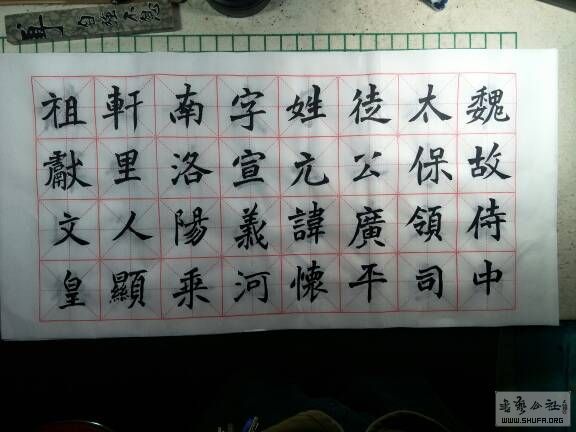 魏故侍中
太保領司
徒公廣平
姓元諱懷
字宣義河
南洛陽乘
軒里人顯
祖獻文皇
自強不息
书艺公社
WWW.SHUFA.ORG